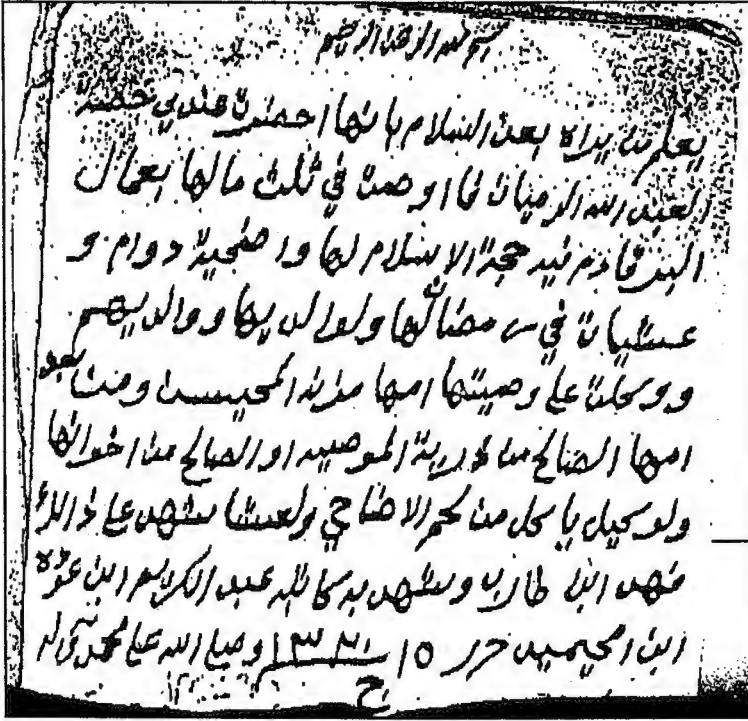 بسم الله الرحمن الرحيم
يعلم من يراه بعد السلام بانها احضرة عندي حصة
العبد الله الرميان فا اوصت في ثلث مالها بعمال
البر قادم فيه حجة الاسلام لها واضحية دوام و
عشيات في رمضان لها ولوالديها ووالديهم
ووكلت على وصيتها امها مزنه المحيسن ومن بعد
امها الصالح من ذورية الموصيه او الصالح من اخوانها
ولوكيل ياكل من لحم الاضاحي ولعشا شهد على ذالك
فهد ابن وشهد به كاتبه عبد الكريم ابن عوده
ابن امحيميد حرر ١٥ ١٣٣١ وصلى الله على محمد واله